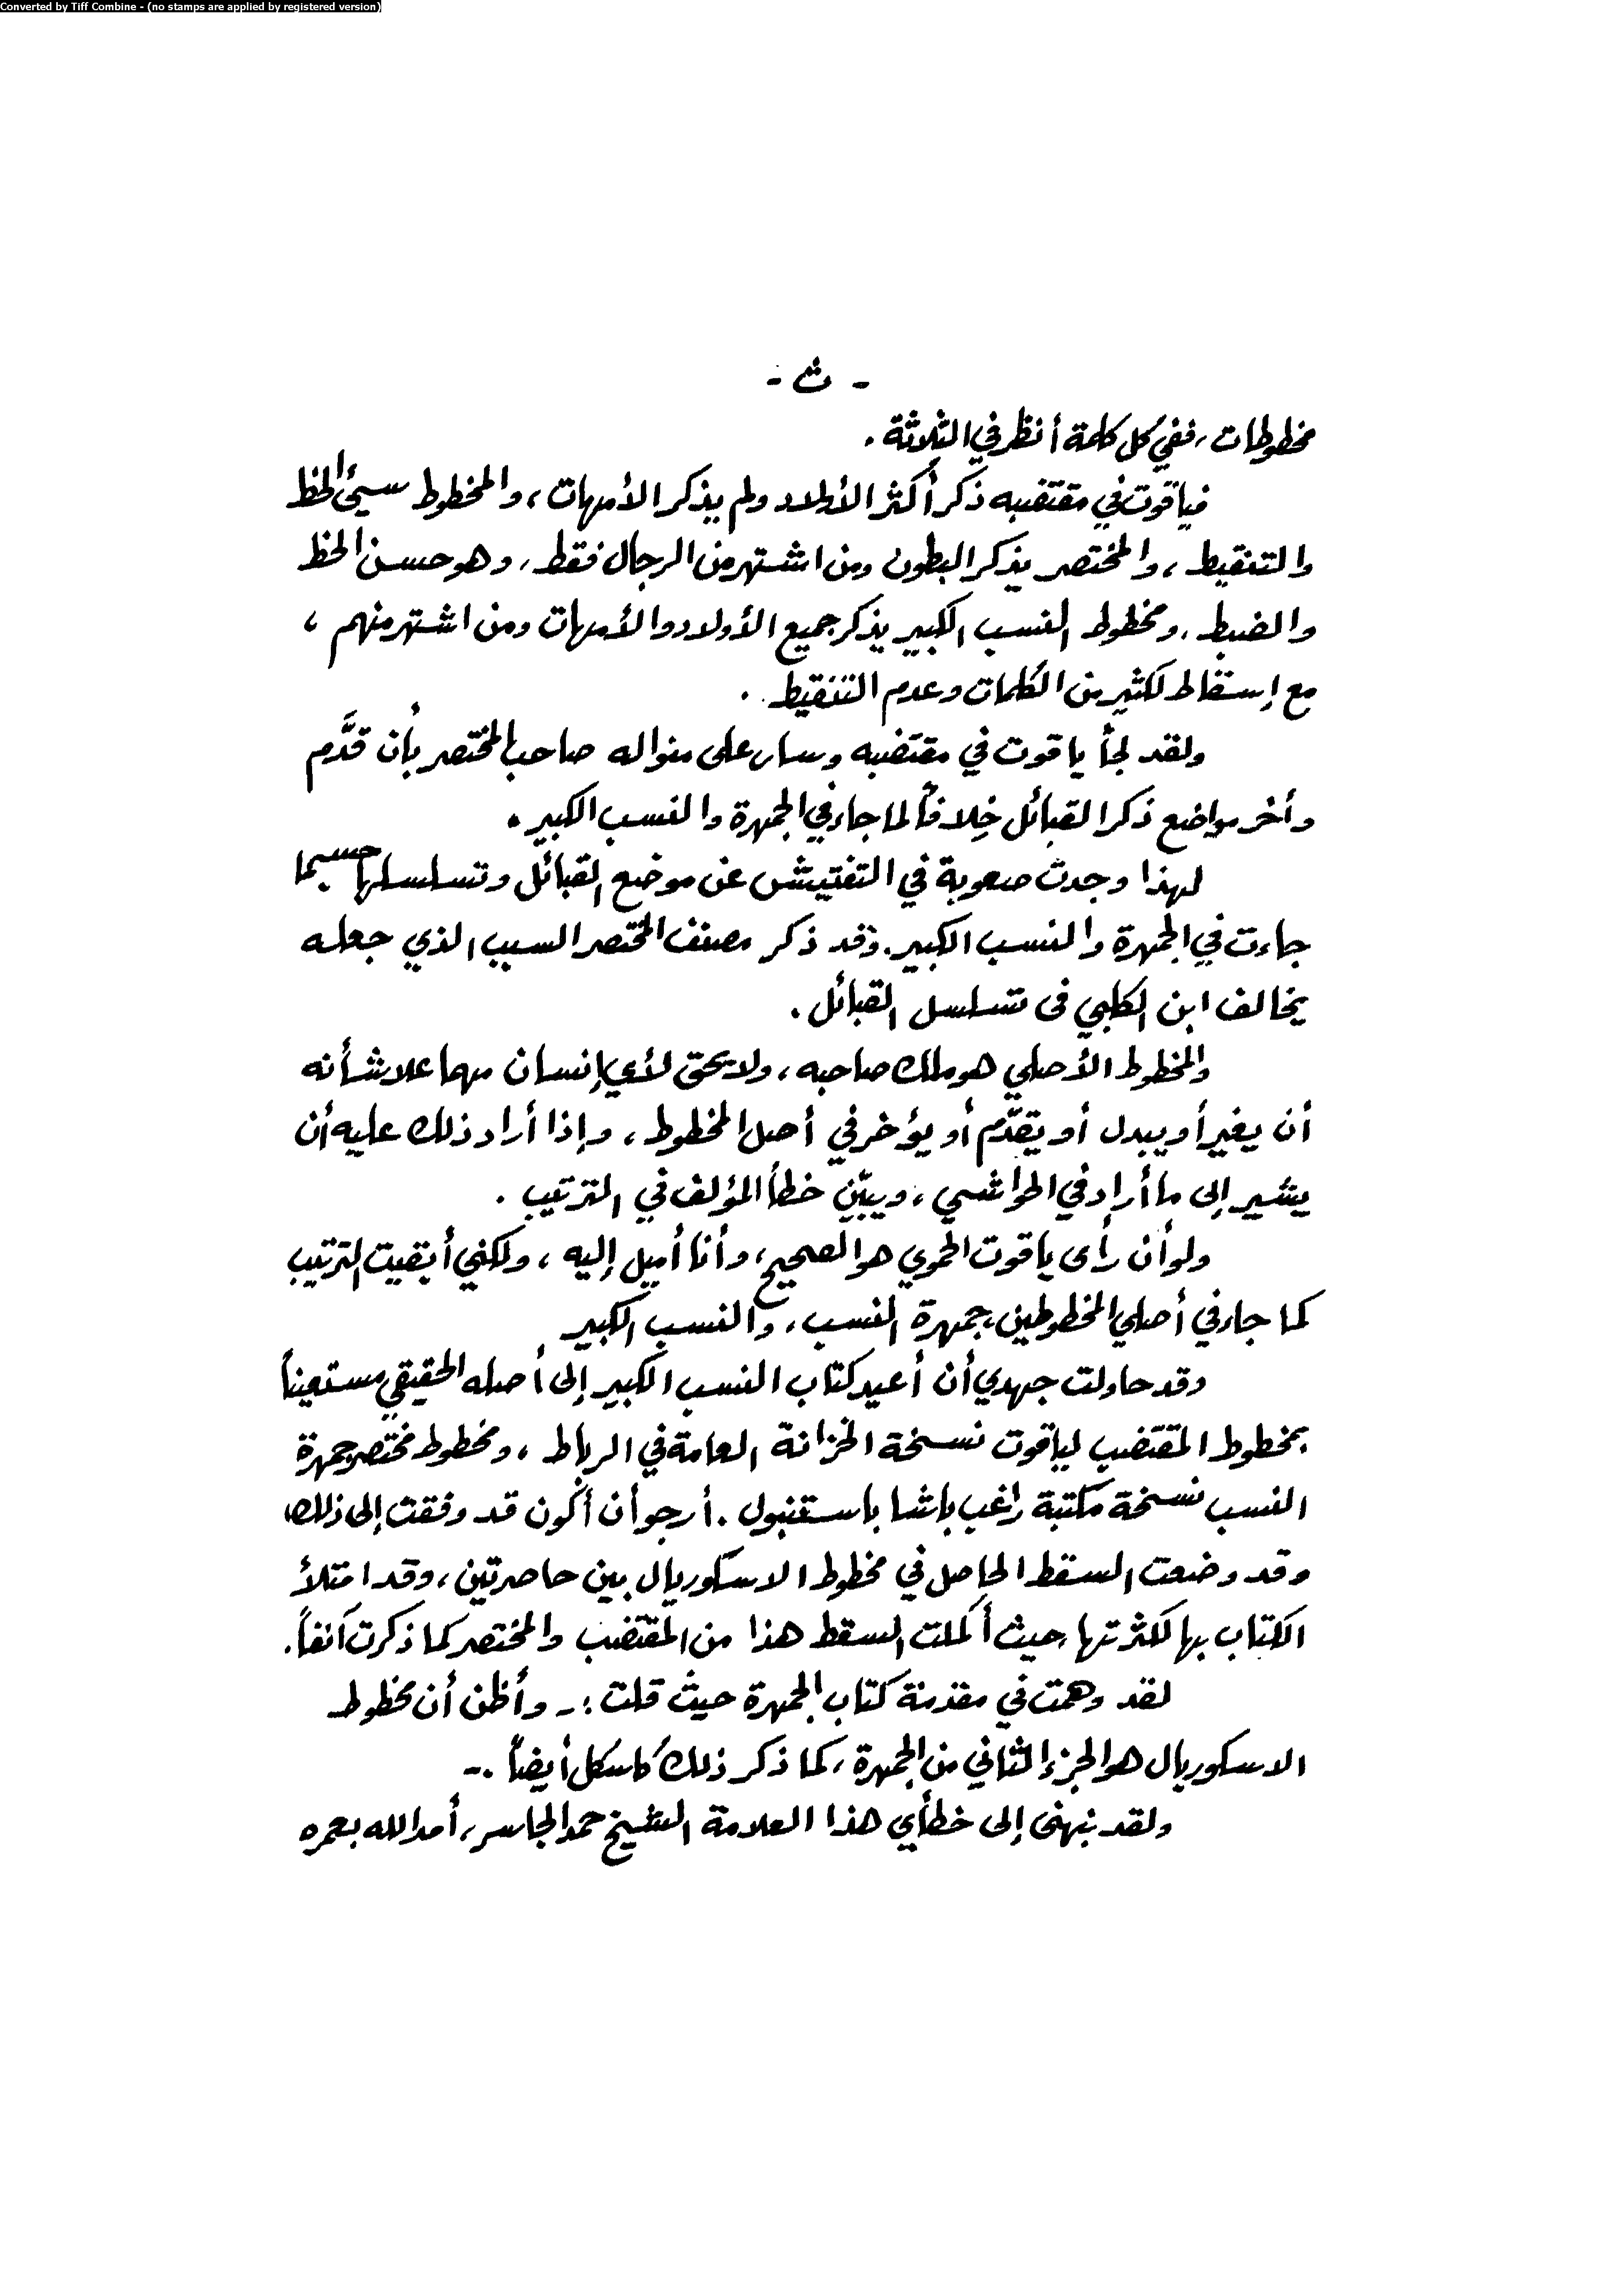 Converted by Tiff Combine - (no stamps are applied by registered version)
- ث -
مخطوطات، ففي كل كلمة أنظر في الثلاثة .
فياقوت في مقتضبه ذكر أكثر الأولاد ولم يذكر الأمهات، والمخطوط سيئ الخط
والتنقيط، والمختصر يذكر البطون ومن اشتهر من الرجال فقط، وهو حسن الخط
والضبط، ومخطوط النسب الكبير يذكر جميع الأولاد والأمهات ومن اشتهر منهم،
مع إسقاط لكثير من الكلمات وعدم التنقيط .
ولقد لجأ ياقوت في مقتضبه وسار على منواله صاحب المختصر بأن قدَّم
وأخر مواضع ذكر القبائل خلافاً لما جاء في الجمهرة والنسب الكبير .
لهذا وجدت صعوبة في التفتيش عن موضع القبائل وتسلسلها حسبما
جاءت في الجمهرة والنسب الكبير. وقد ذكر مصنف المختصر السبب الذي جعله
يخالف ابن الكلبي في تسلسل القبائل .
والمخطوط الأصلي هو ملك صاحبه، ولا يحق لأي إنسان مهما علا شأنه
أن يغير أو يبدل أو يقدّم أو يؤخر في أصل المخطوط، وإذا أراد ذلك عليه أن
يشير إلى ما أراد في الحواشي، ويبيّن خطأ المؤلف في الترتيب .
ولو أن رأى ياقوت الحموي هو الصحيح، وأنا أميل إليه، ولكني أبقيت الترتيب
كما جاء في أصلي المخطوطين، جمهرة النسب، والنسب الكبير
وقد حاولت جهدي أن أعيد كتاب النسب الكبير إلى أصله الحقيقي مستعيناً
بمخطوط المقتضب لياقوت نسخة الخزانة العامة في الرباط، ومخطوط مختصر جمهرة
النسب نسخة مكتبة راغب باشا باستنبول . أرجو أن أكون قد وفقت إلى ذلك،
وقد وضعت السقط الحاصل في مخطوط الاسكوريال بين حاصرتين، وقد امتلأ
الكتاب بها لكثرتها، حيث أكملت السقط هذا من المقتضب والمختصر كما ذكرت آنفاً.
لقد وهمت في مقدمة كتاب الجمهرة حيث قلت :- وأظن أن مخطوط
الاسكوريال هو الجزء الثاني من الجمهرة، كما ذكر ذلك كاسكل أيضاً .-
ولقد نبهني إلى خطأي هذا العلامة الشيخ حمد الجاسر، أمد الله بعمره